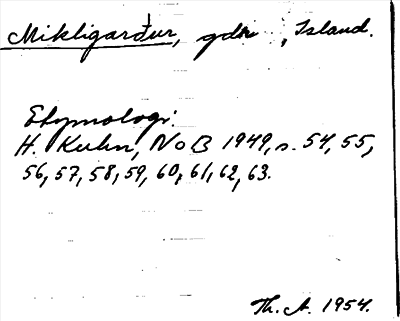 Mikligarður, gdn , Island.
Etymologi:
H. Kuhn, NoB 1949, s. 54, 55,
56, 57, 58, 59, 60, 61, 62, 63.
Th. A. 1954.